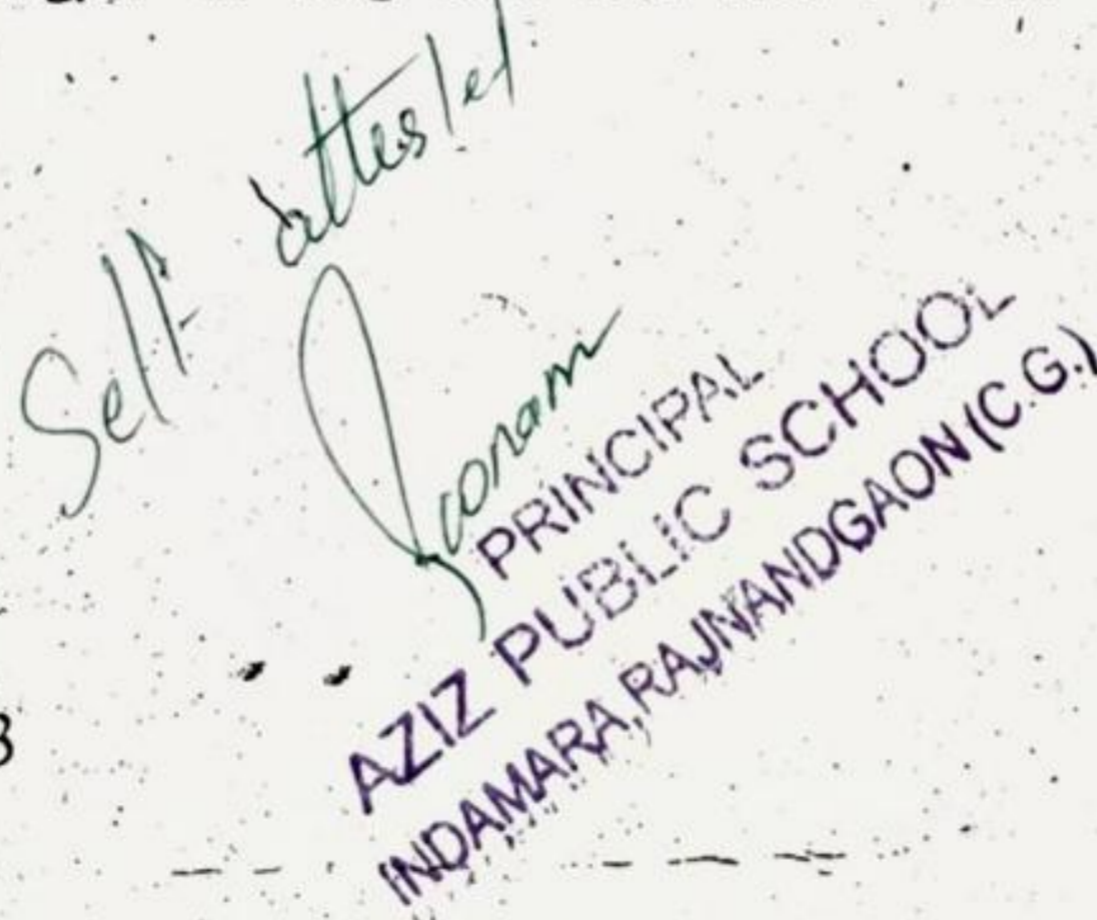 Self attested
PRINCIPAL
AZIZ PUBLIC SCHOOL
INDAMARA, RAJNANDGAON (C.G.)